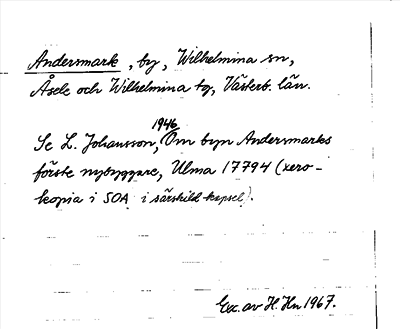 Andersmark, by, Wilhelmina sn,
Åsele och Wilhelmina tg, Västerb. län.
1946
Se L. Johansson, Om byn Andersmarks
förste nybyggare, Ulma 17794 (xero-
kopia i SOA i särskild kapsel).
Exc. av H. Hn 1967.